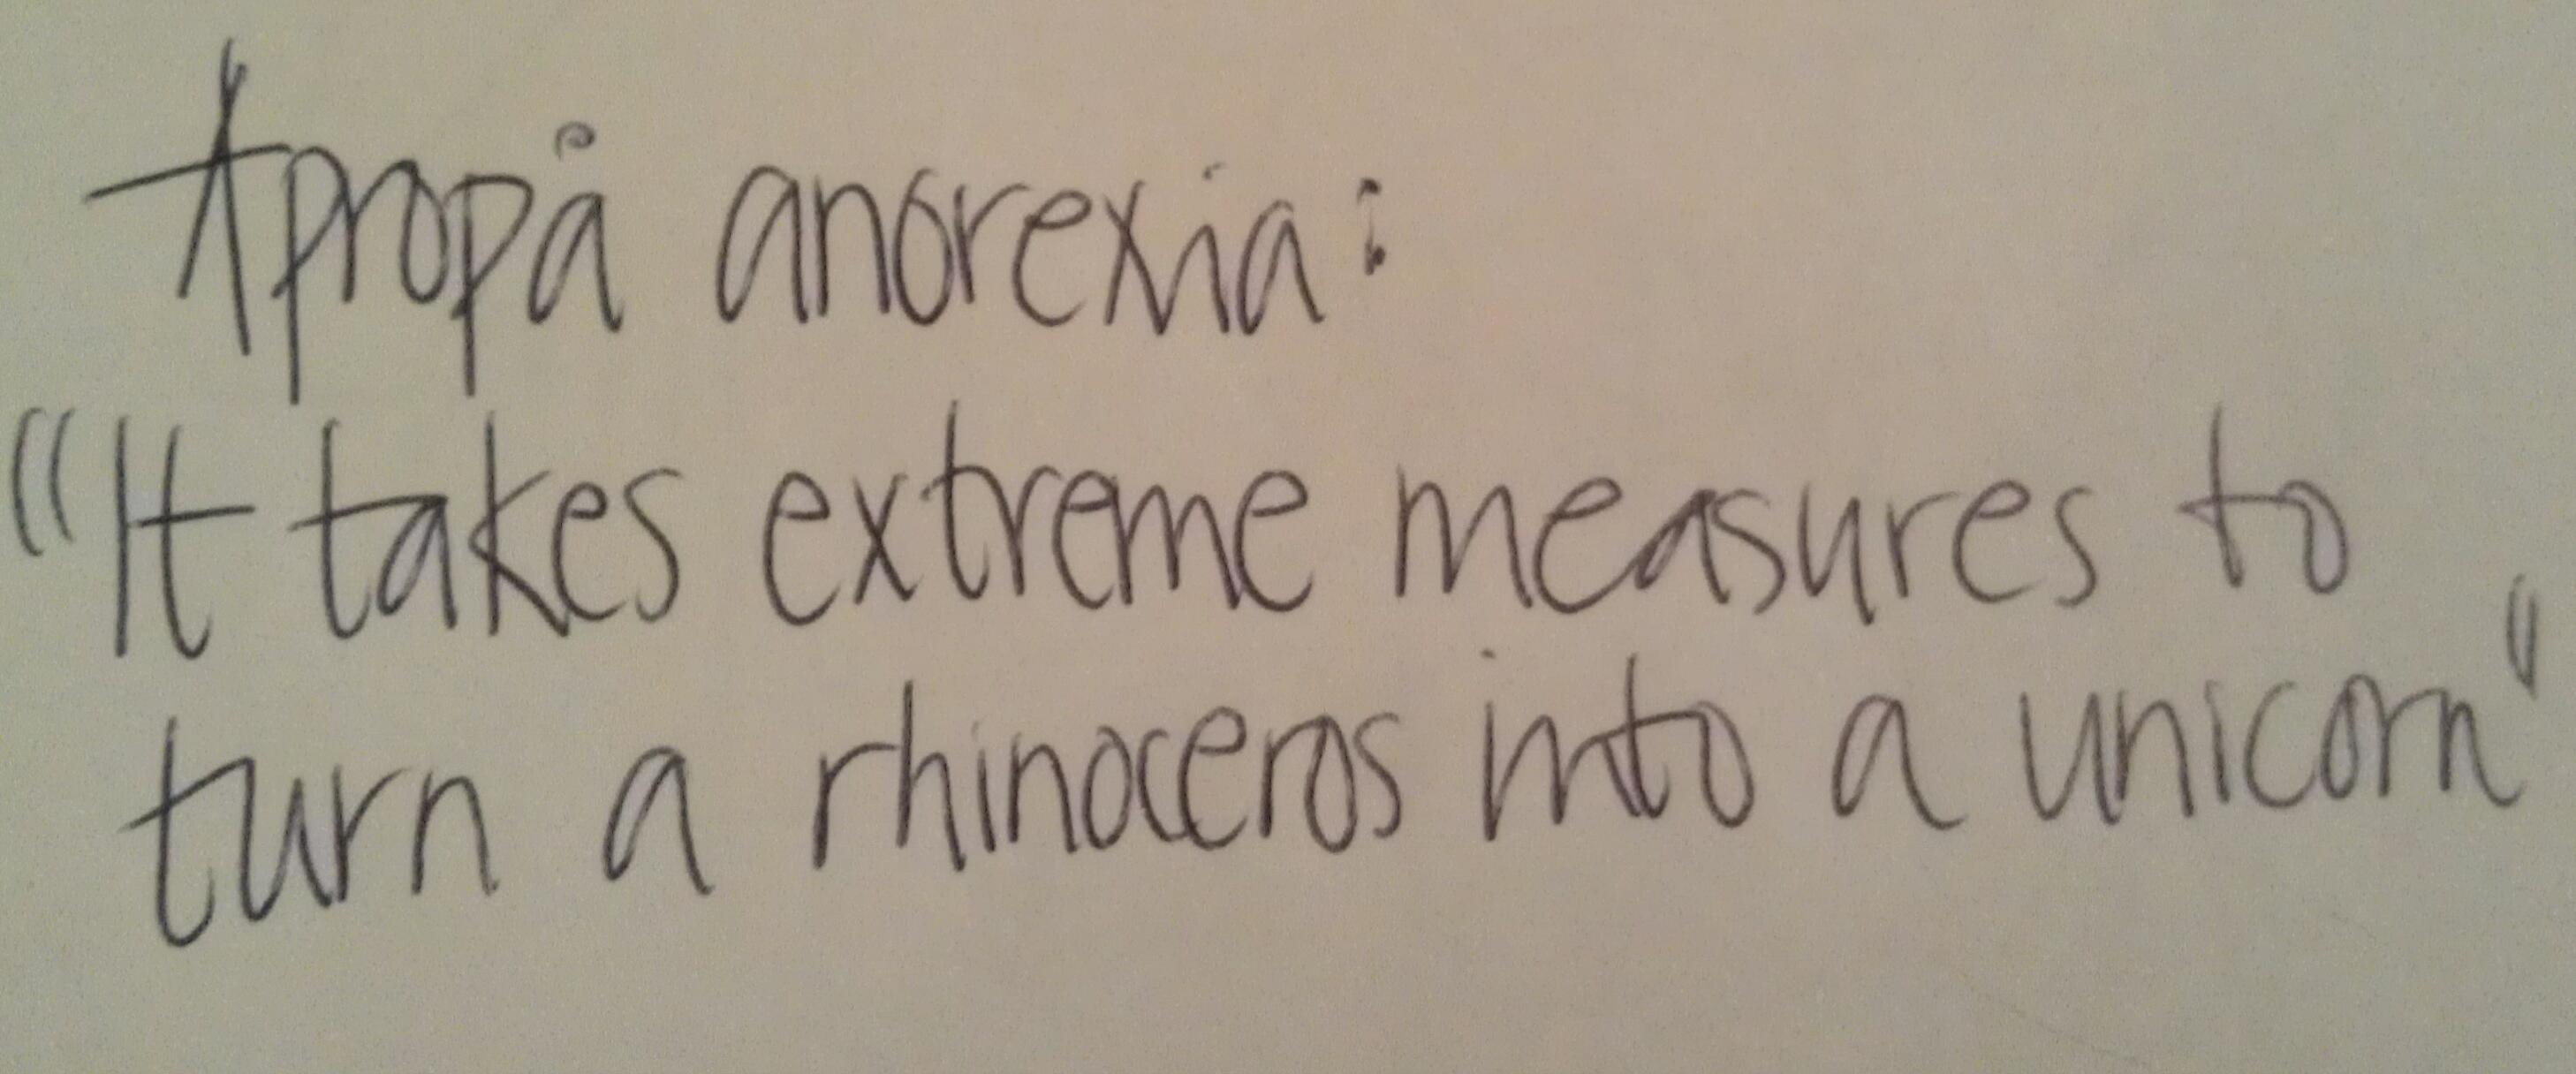 Apropå anorexia:
"It takes extreme measures to
turn a rhinoceros into a unicorn"